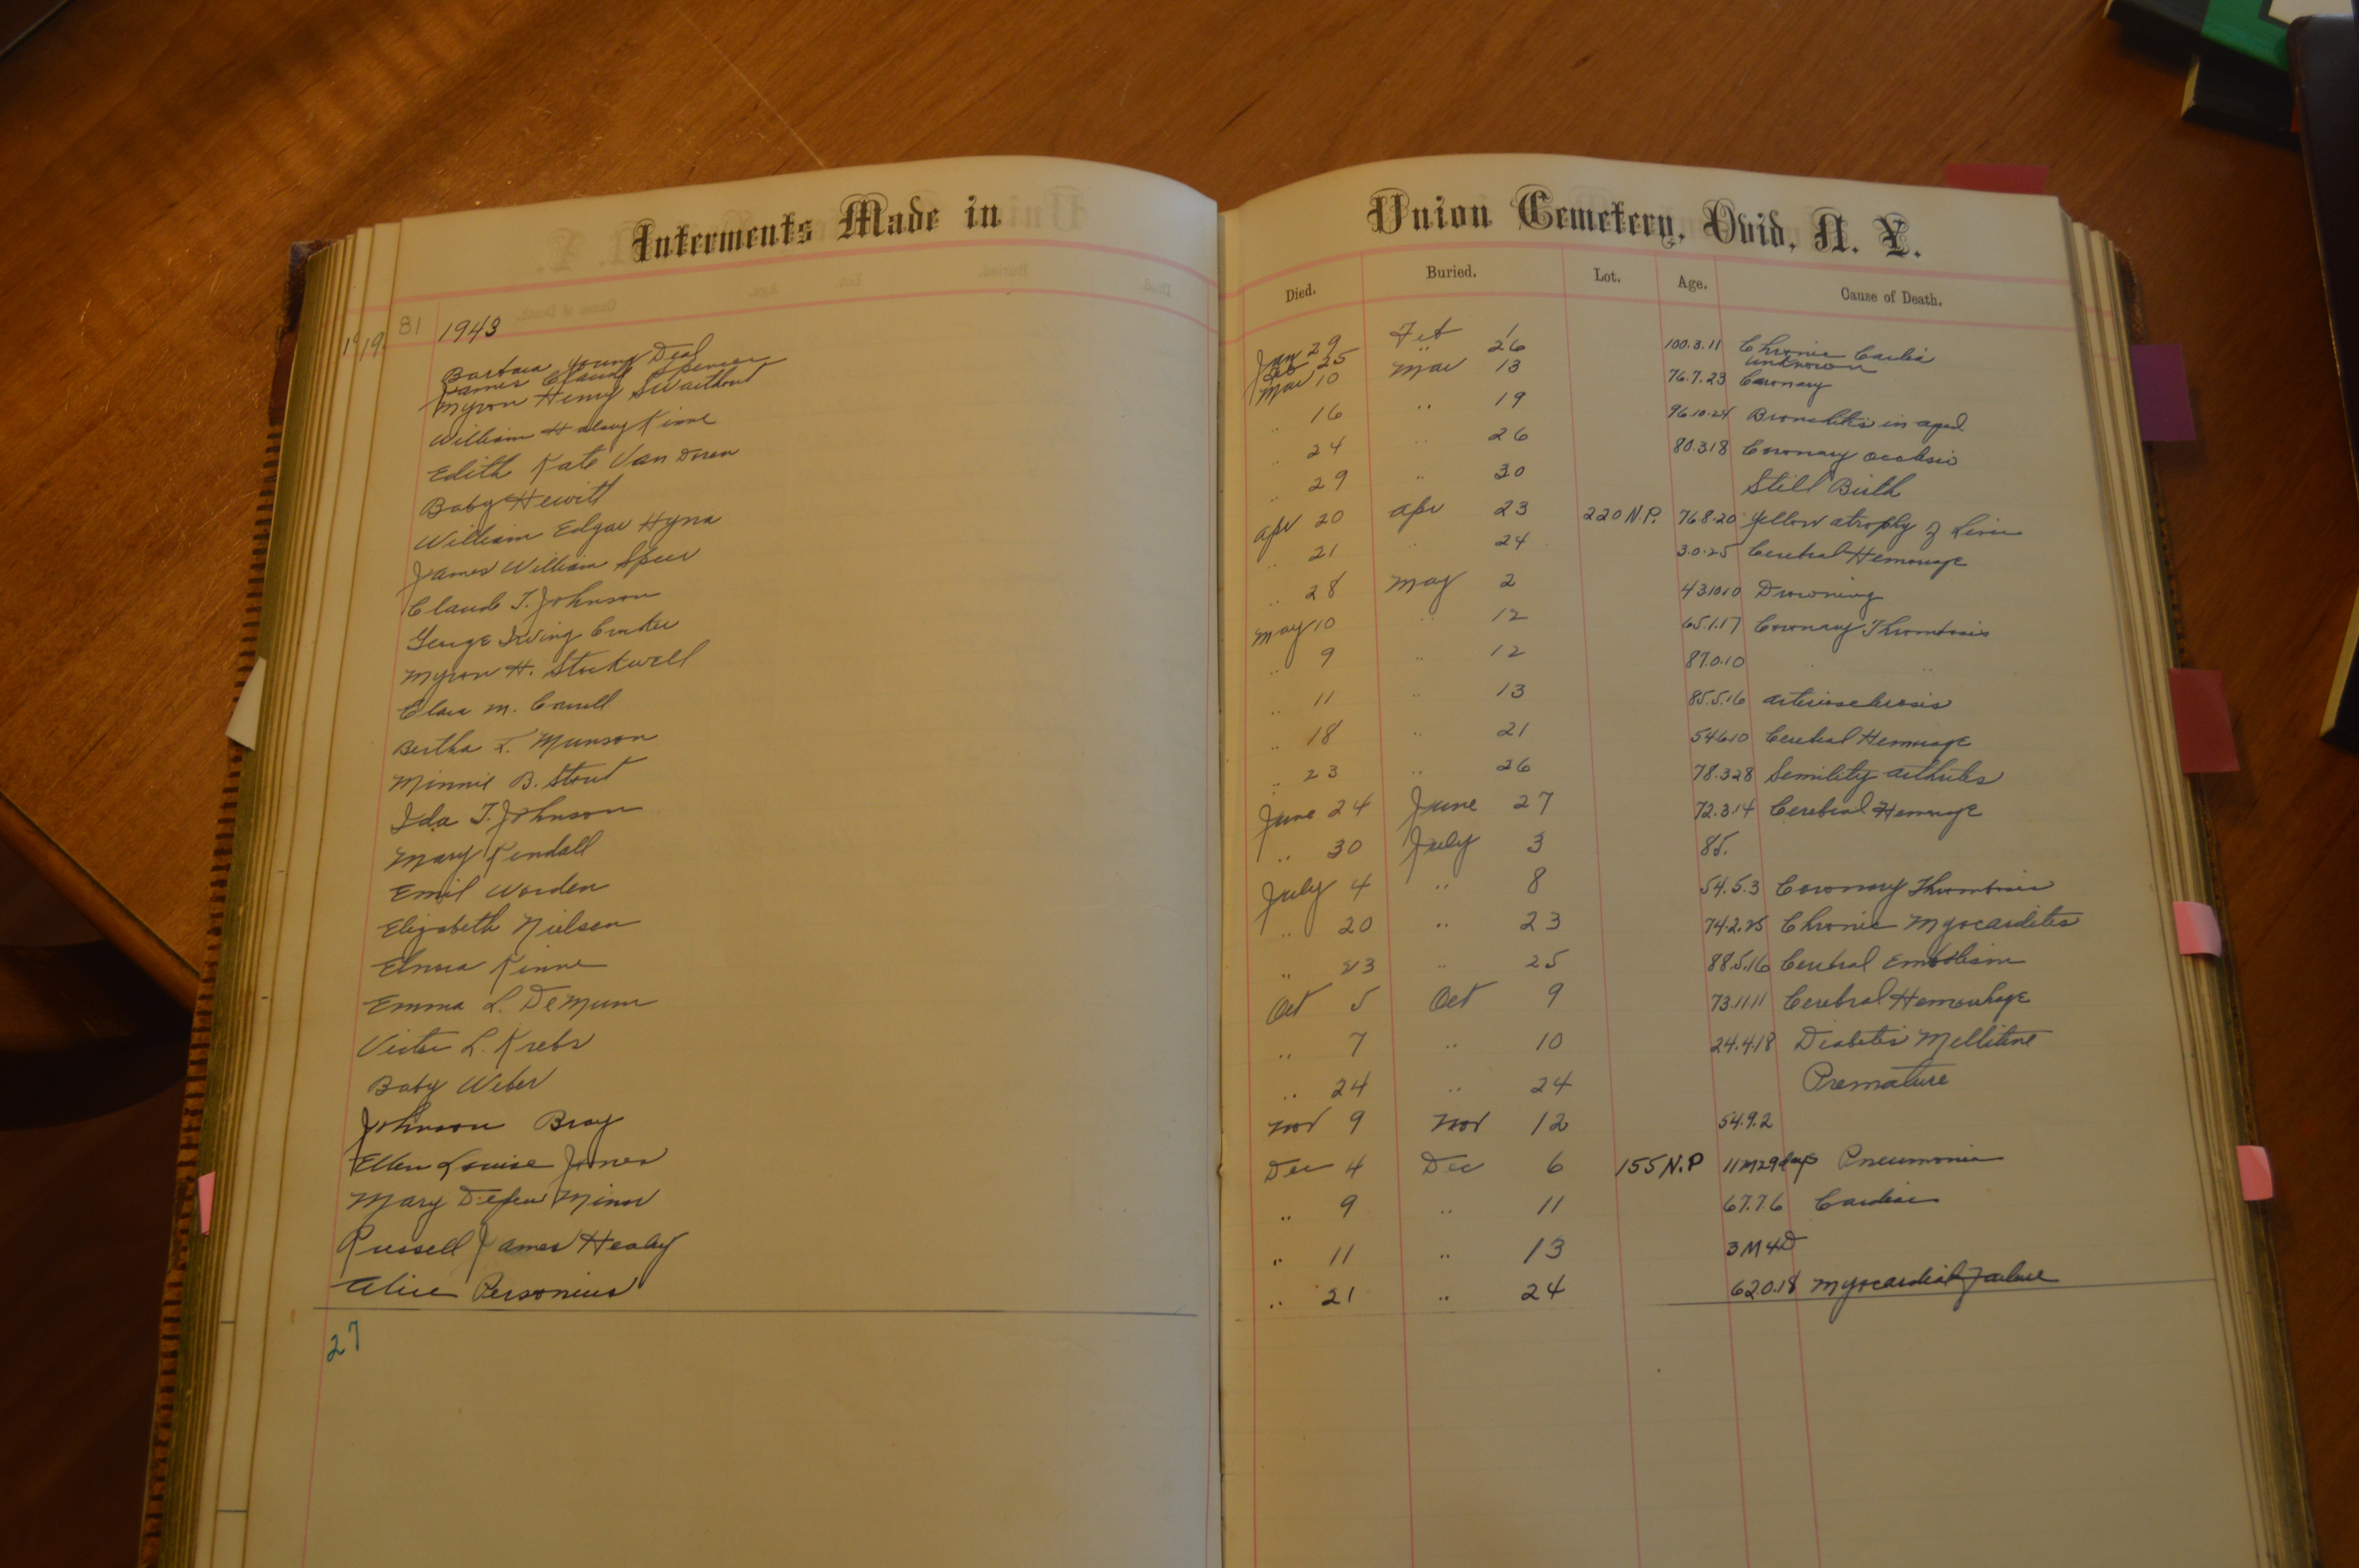 Interments Made in Union Cemetery, Ovid, N. Y.
Died. Buried. Lot. Age. Cause of Death.
81 1943
Barbara Young Deal Jan 29 Feb 1 100.3.11 Chronic Cardia
James Claude Spencer Feb 25 " 26 unknown
Myron Henry Swarthout Mar 10 Mar 13 76.7.23 Coronary
William Halsey Kinne " 16 " 19 96.10.24 Bronchitis in aged
Edith Kate Van Doren " 24 " 26 80.3.18 Coronary occlusio
Baby Hewitt " 29 " 30 Still Birth
William Edgar Hyna Apr 20 Apr 23 220 N.P. 76.8.20 Yellow atrophy of Liver
James William Speer " 21 " 24 3.0.25 Cerebral Hemorage
Claude T. Johnson " 28 May 2 43.10.10 Drowning
George Irving May 10 " 12 65.1.17 Coronary Thrombosis
Myron H. Stockwell " 9 " 12 87.0.10 " "
Clara M. Covell " 11 " 13 85.5.16 arteriosclerosis
Bertha L. Munson " 18 " 21 54.6.10 Cerebral Hemorage
Minnie B. Stout " 23 " 26 78.3.28 Semility arthrites
Ida T. Johnson June 24 June 27 72.3.14 Cerebral Hemorage
Mary Kendall " 30 July 3 85.
Emil Worden July 4 " 8 54.5.3 Coronary Thrombosis
Elizabeth Nielsen " 20 " 23 74.2.25 Chronic Myocardites
Elnora Kinne " 23 " 25 88.5.16 Cerebral Embolism
Emma L. DeMunn Oct 5 Oct 9 73.11.11 Cerebral Hemorrhage
Victor L. Krebs " 7 " 10 24.4.18 Diabetis Mellitine
Baby Weber " 24 " 24 Premature
Johnson Bray Nov 9 Nov 12 54.9.2
Ellen Louise Jones Dec 4 Dec 6 155 N.P 11M29days Pneumonia
Mary Depew Minor " 9 " 11 67.7.6 Cardiac
Russell James Healey " 11 " 13 3M4D
Alice Personius " 21 " 24 62.0.18 Myocardial Failure
27